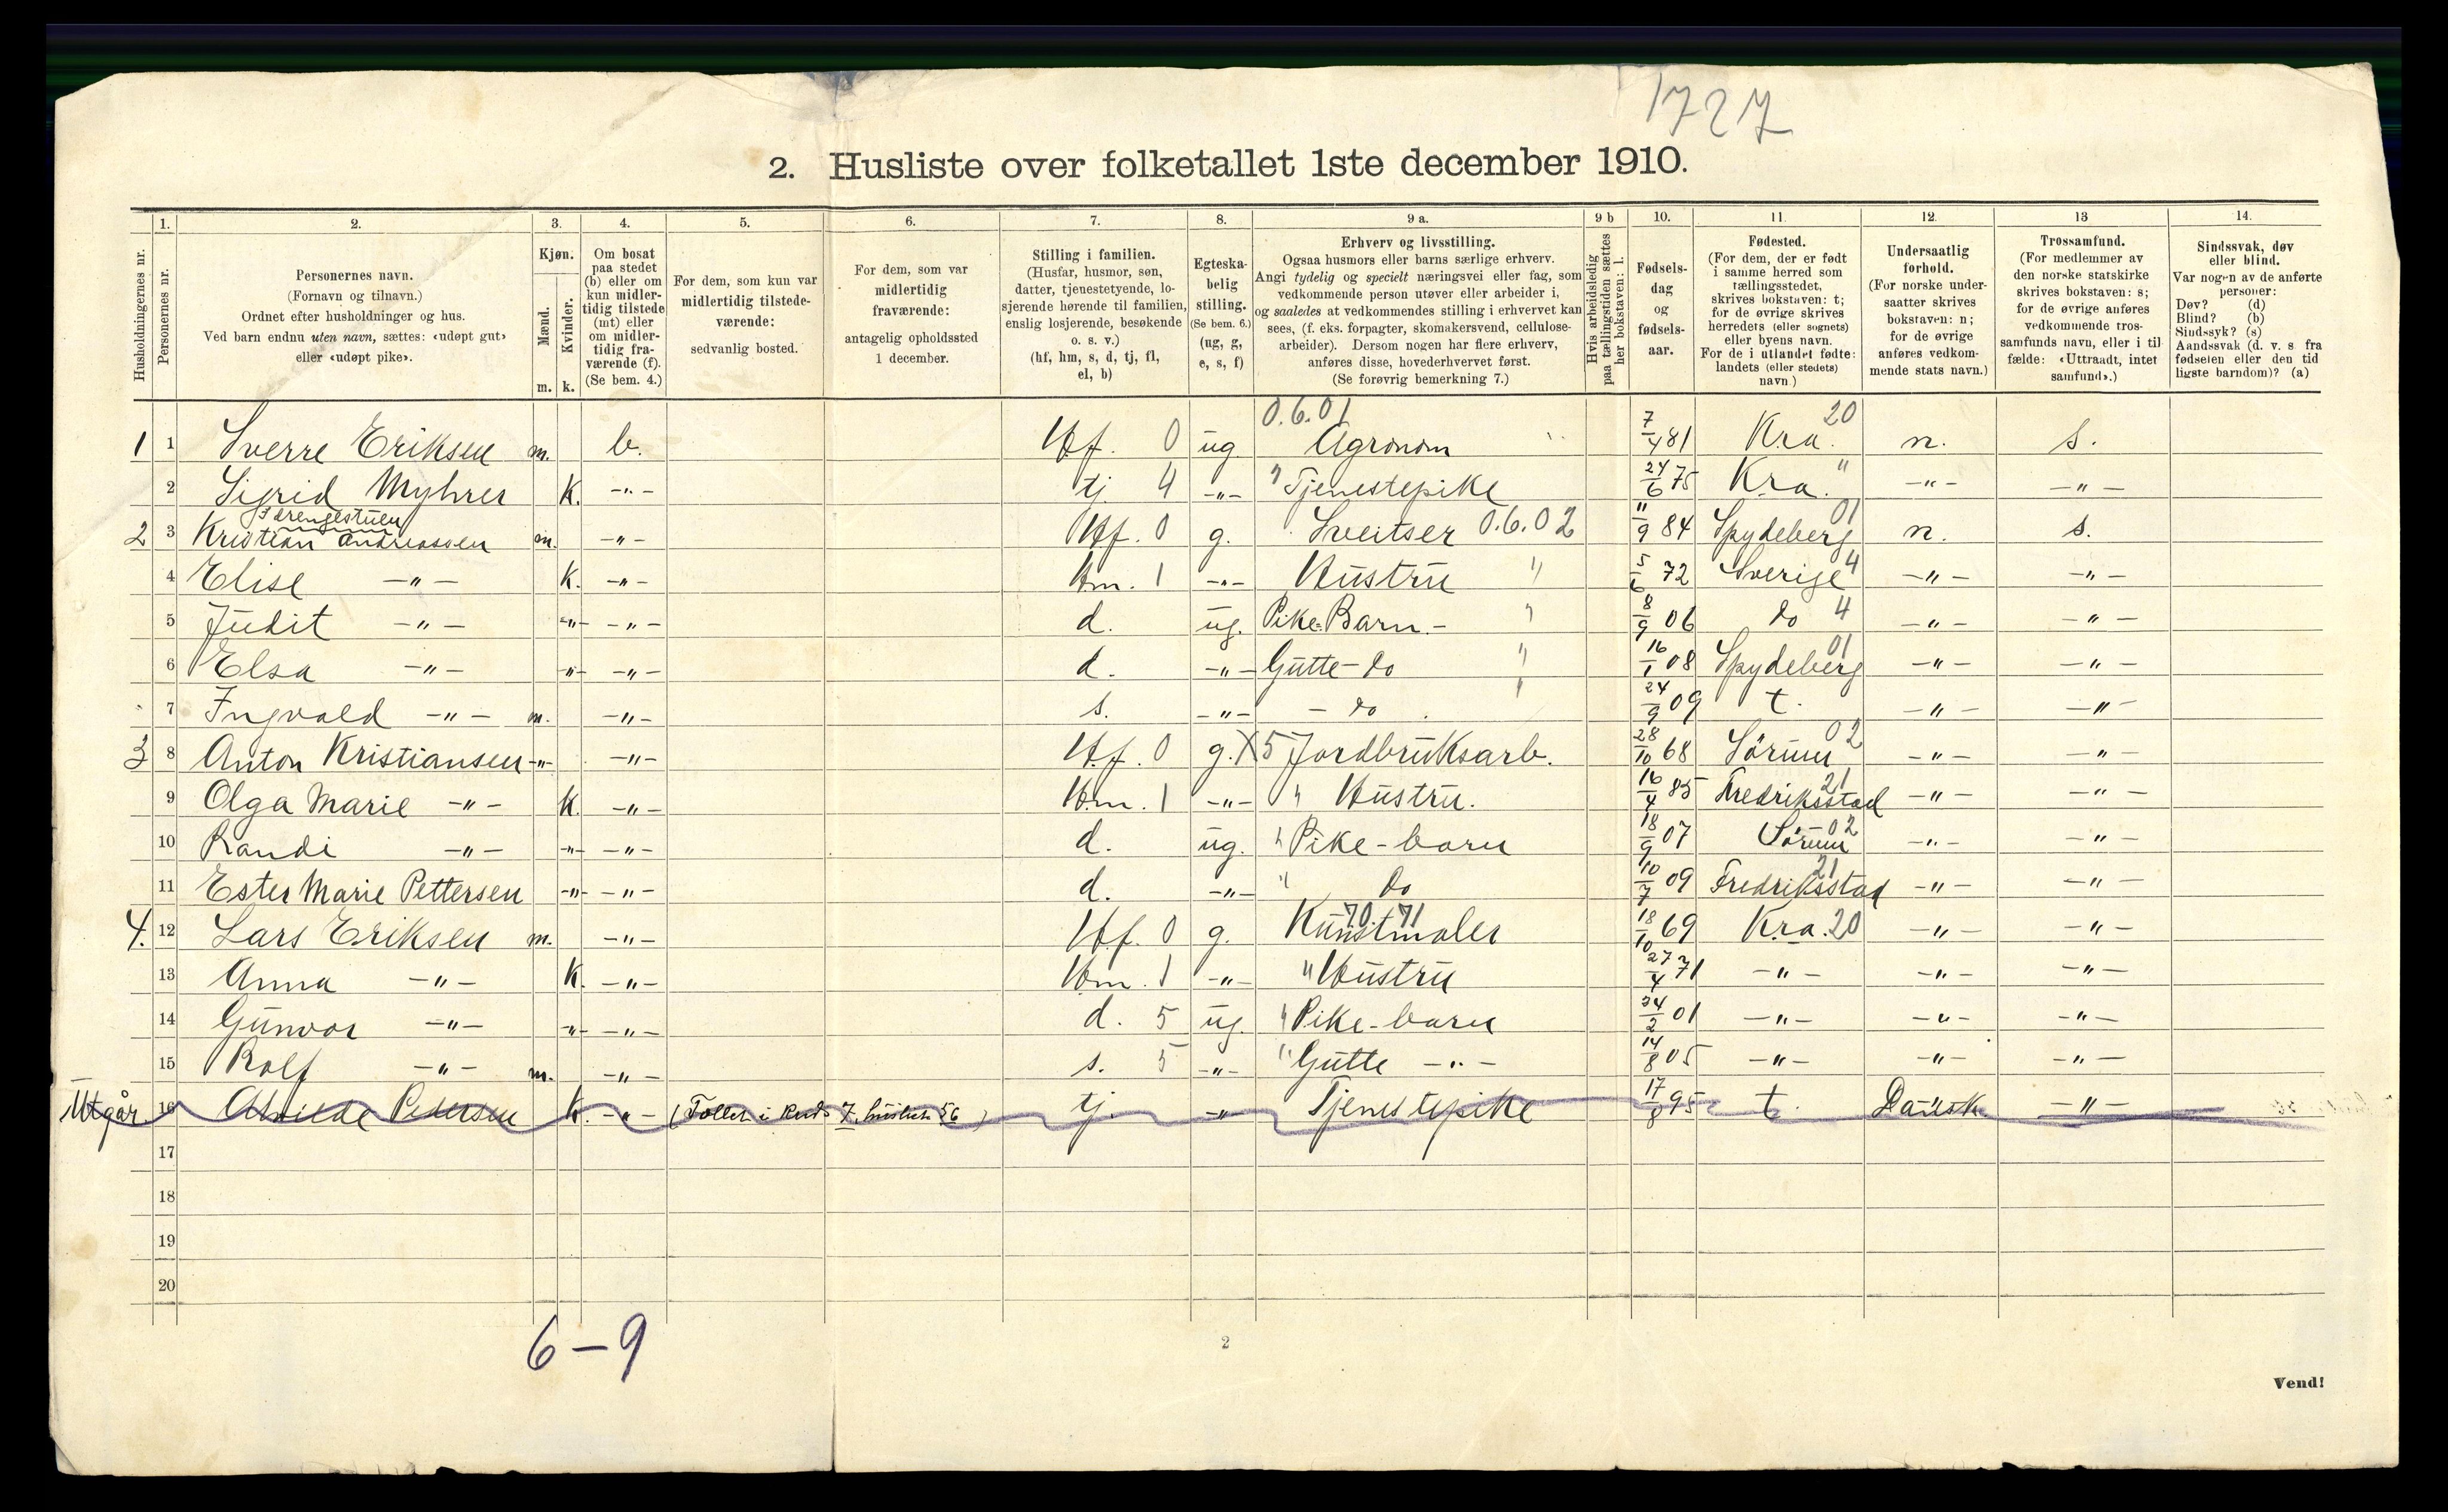 1727
2. Husliste over folketallet 1ste december 1910.
1. 2. 3. 4. 5. 6. 7. 8. 9 a. 9 b 10. 11. 12. 13 14.
Husholdningernes nr.
Personernes nr.
Personernes navn.
(Fornavn og tilnavn.)
Ordnet efter husholdninger og hus.
Ved barn endnu uten navn, sættes: «udøpt gut»
eller «udøpt pike».
Kjøn.
Mænd.
Kvinder.
m. k.
Om bosat
paa stedet
(b) eller om
kun midler-
tidig tilstede
(mt) eller
om midler-
tidig fra-
værende (f).
(Se bem. 4.)
For dem, som kun var
midlertidig tilstede-
værende:
sedvanlig bosted.
For dem, som var
midlertidig
fraværende:
antagelig opholdssted
1 december.
Stilling i familien.
(Husfar, husmor, søn,
datter, tjenestetyende, lo-
sjerende hørende til familien,
enslig losjerende, besøkende
o. s. v.)
(hf, hm, s, d, tj, fl,
el, b)
Egteska-
belig
stilling.
(Se bem. 6.)
(ug, g,
e, s, f)
Erhverv og livsstilling.
Ogsaa husmors eller barns særlige erhverv.
Angi tydelig og specielt næringsvei eller fag, som
vedkommende person utøver eller arbeider i,
og saaledes at vedkommendes stilling i erhvervet kan
sees, (f. eks. forpagter, skomakersvend, cellulose-
arbeider). Dersom nogen har flere erhverv,
anføres disse, hovederhvervet først.
(Se forøvrig bemerkning 7.)
Hvis arbeidsledig
paa tællingstiden sættes
her bokstaven: l.
Fødsels-
dag
og
fødsels-
aar.
Fødested.
(For dem, der er født
i samme herred som
tællingsstedet,
skrives bokstaven: t;
for de øvrige skrives
herredets (eller sognets)
eller byens navn.
For de i utlandet fødte:
landets (eller stedets)
navn.)
Undersaatlig
forhold.
(For norske under-
saatter skrives
bokstaven: n;
for de øvrige
anføres vedkom-
mende stats navn.)
Trossamfund.
(For medlemmer av
den norske statskirke
skrives bokstaven: s;
for de øvrige anføres
vedkommende tros-
samfunds navn, eller i til-
fælde: «Uttraadt, intet
samfund».)
Sindssvak, døv
eller blind.
Var nogen av de anførte
personer:
Døv? (d)
Blind? (b)
Sindssyk? (s)
Aandssvak (d. v. s. fra
fødselen eller den tid
ligste barndom)? (a)
0.6.01 20
1 1 Sverre Eriksen m. b. Hf. 0 ug Agronom 7/4 81 Kra. n. s.
2 Sigrid Myhrer K. -"- tj 4 -"- " Tjenestepike 24/6 75 Kra. " -"- -"-
I drengestuen
2 3 Kristian Andreassen m. -"- Hf. 0 g. Sveitser 0.6.02 11/9 84 Spydeberg 01 n. s.
4 Elise -"- K. -"- Hm. 1 -"- Hustru " 5/6 72 Sverige 4 -"- -"-
5 Judit -"- -"- -"- d. ug. Pike-Barn.- " 8/9 06 do 4 -"- -"-
6 Elsa -"- -"- -"- d. -"- Gutte-do " 16/1 08 Spydeberg 01 -"- -"-
7 Ingvald -"- m. -"- s. -"- - do " 24/9 09 t. -"- -"-
3 8 Anton Kristiansen -"- -"- Hf. 0 g. X5 Jordbruksarb. 28/10 68 Sörum 02 -"- -"-
9 Olga Marie -"- K. -"- Hm. 1 -"- " Hustru. 16/4 85 Fredriksstad 21 -"- -"-
10 Randi -"- -"- -"- d. ug. " Pike-barn 18/9 07 Sörum 02 -"- -"-
11 Ester Marie Pettersen -"- -"- d. -"- " do 10/7 09 Fredriksstad 21 -"- -"-
4. 12 Lars Eriksen m. -"- Hf. 0 g. Kunstmaler 70.71 18/10 69 Kra. 20 -"- -"-
13 Anna -"- K. -"- Hm. 1 -"- " Hustru 27/4 71 -"- -"- -"-
14 Gunvor -"- -"- -"- d. 5 ug. " Pike-barn 24/2 01 -"- -"- -"-
15 Rolf -"- m. -"- s. 5 -"- " Gutte -"- 14/8 05 -"- -"- -"-
Utgår 16 Alvilde Pedersen K. -"- (Tallet i kreds 7, husliste 56) tj. -"- Tjenestepike 17/8 95 t. Dansk -"-
17
18
19
20
6-9
2
Vend!